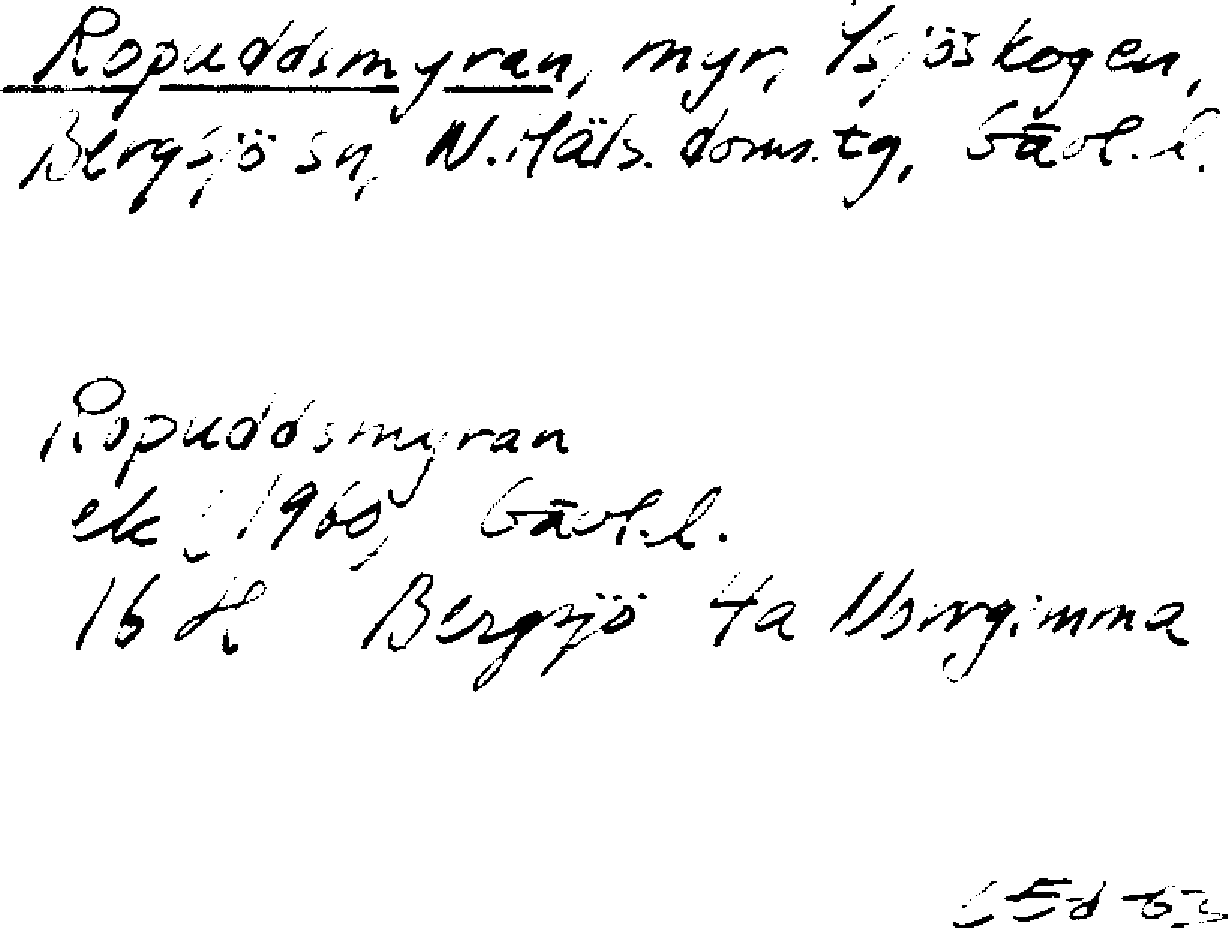 Ropuddsmyran, myr, Ysjöskogen,
Bergsjö sn, N. Häls. doms. tg, Gävl. l.
Ropuddsmyran
ek 1960, Gävl. l.
16 H Bergsjö 4a Norrgimma